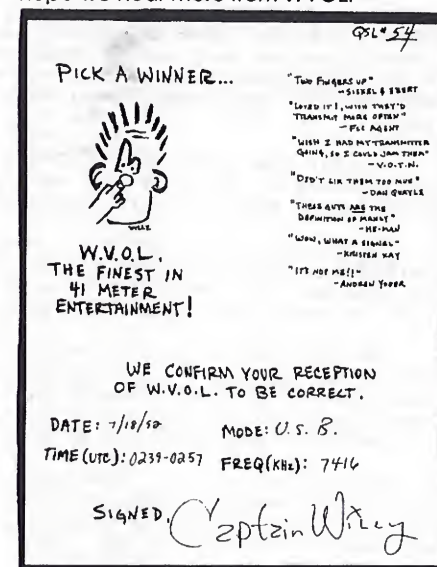 QSL# 54
PICK A WINNER...
WILLE
W.V.O.L.
THE FINEST IN
41 METER
ENTERTAINMENT!
"TWO FINGERS UP"
-SISKEL & EBERT
"LOVED IT!, WISH THEY'D
TRANSMIT MORE OFTEN"
-FCC AGENT
"WISH I HAD MY TRANSMITTER
GOING, SO I COULD JAM THEM"
-V.O.T.N.
"DID'T LIK THEM TOO MUE"
-DAN QUAYLE
"THESE GUYS ARE THE
DEFINITION OF MANLY"
-HE-MAN
"WOW, WHAT A SIGNAL"
-KRISTEN KAY
"IT'S NOT ME!!"
-ANDREW YODER
WE CONFIRM YOUR RECEPTION
OF W.V.O.L. TO BE CORRECT.
DATE: 7/18/92
MODE: U.S.B.
TIME (UTC): 0239-0257
FREQ(KHz): 7416
SIGNED, Captain Wiley